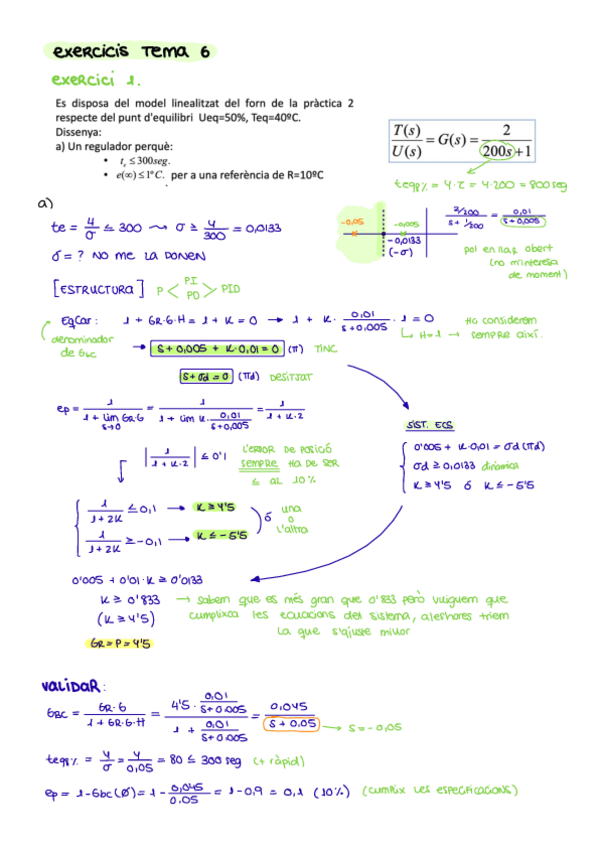 exercicis tema 6
exercici 1.
Es disposa del model linealitzat del forn de la pràctica 2
respecte del punt d'equilibri Ueq=50%, Teq=40ºC.
Dissenya:
a) Un regulador perquè:
• t_e ≤ 300seg.
• e(∞) ≤ 1º C. per a una referència de R=10ºC
T(s)/U(s) = G(s) = 2/(200s+1)
teq8% = 4·τ = 4·200 = 800 seg
a)
te = 4/σ ≤ 300 ⤳ σ ≥ 4/300 = 0,0133
σ = ? NO ME LA DONEN
-0,05
-0,005
-0,0133
(-σ)
(2/200)/(s + 1/200) = 0,01/(s+0,005)
pol en llaç obert
(no m'interesa
de moment)
[ESTRUCTURA] P < PI PD > PID
EqCar: 1 + GR·G·H = 1 + K = 0 → 1 + K · 0,01/(s+0,005) · 1 = 0
Ha considerem
H=1 → sempre així.
denominador
de GBC
→ s+0,005 + K·0,01 = 0 (π) TINC
s + σd = 0 (πd) DESITJAT
ep = 1/(1 + lim s→0 GR·G) = 1/(1 + lim K· 0,01/(s+0,005)) = 1/(1+K·2)
SIST. ECS
|1/(1+K·2)| ≤ 0'1
L'ERROR DE POSICIÓ
SEMPRE HA DE SER
≤ AL 10%
0'005 + K·0,01 = σd (πd)
σd ≥ 0,0133 dinàmica
K ≥ 4'5 ó K ≤ -5'5
1/(1+2K) ≤ 0,1 → K ≥ 4'5
1/(1+2K) ≥ -0,1 → K ≤ -5'5
ó
una
o
l'altra
0'005 + 0'01·K ≥ 0'0133
K ≥ 0'833 → sabem que es més gran que 0'833 però vulguem que
(K ≥ 4'5) cumplixca les ecuacions del sistema, aleshores triem
la que s'ajuste millor
GR = P = 4'5
VALIDAR:
GBC = GR·G/(1+GR·G·H) = (4'5 · 0,01/(s+0.005))/(1 + 0,01/(s+0.005)) = 0,045/(s+0.05) → s = -0,05
teq8% = 4/σ = 4/0,05 = 80 ≤ 300 seg (+ ràpid)
ep = 1-Gbc(0) = 1 - 0,045/0.05 = 1-0,9 = 0,1 (10%) (cumplix les especificacions)